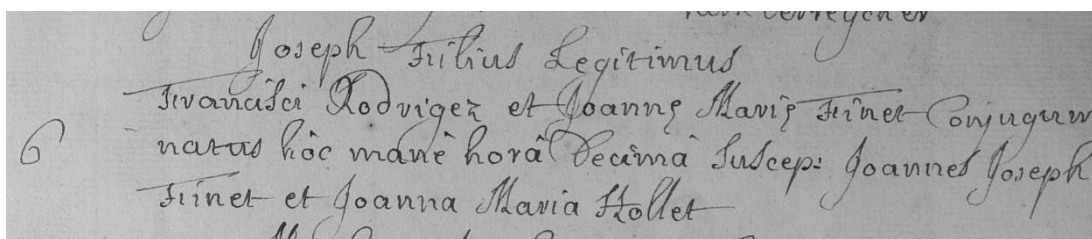 Joseph Filius Legitimus
Francisci Rodrigez et Joannę Marię Finet Conjugum
6 natus hôc manè horâ Decimâ Suscep: Joannes Joseph
Finet et Joanna Maria Hollet